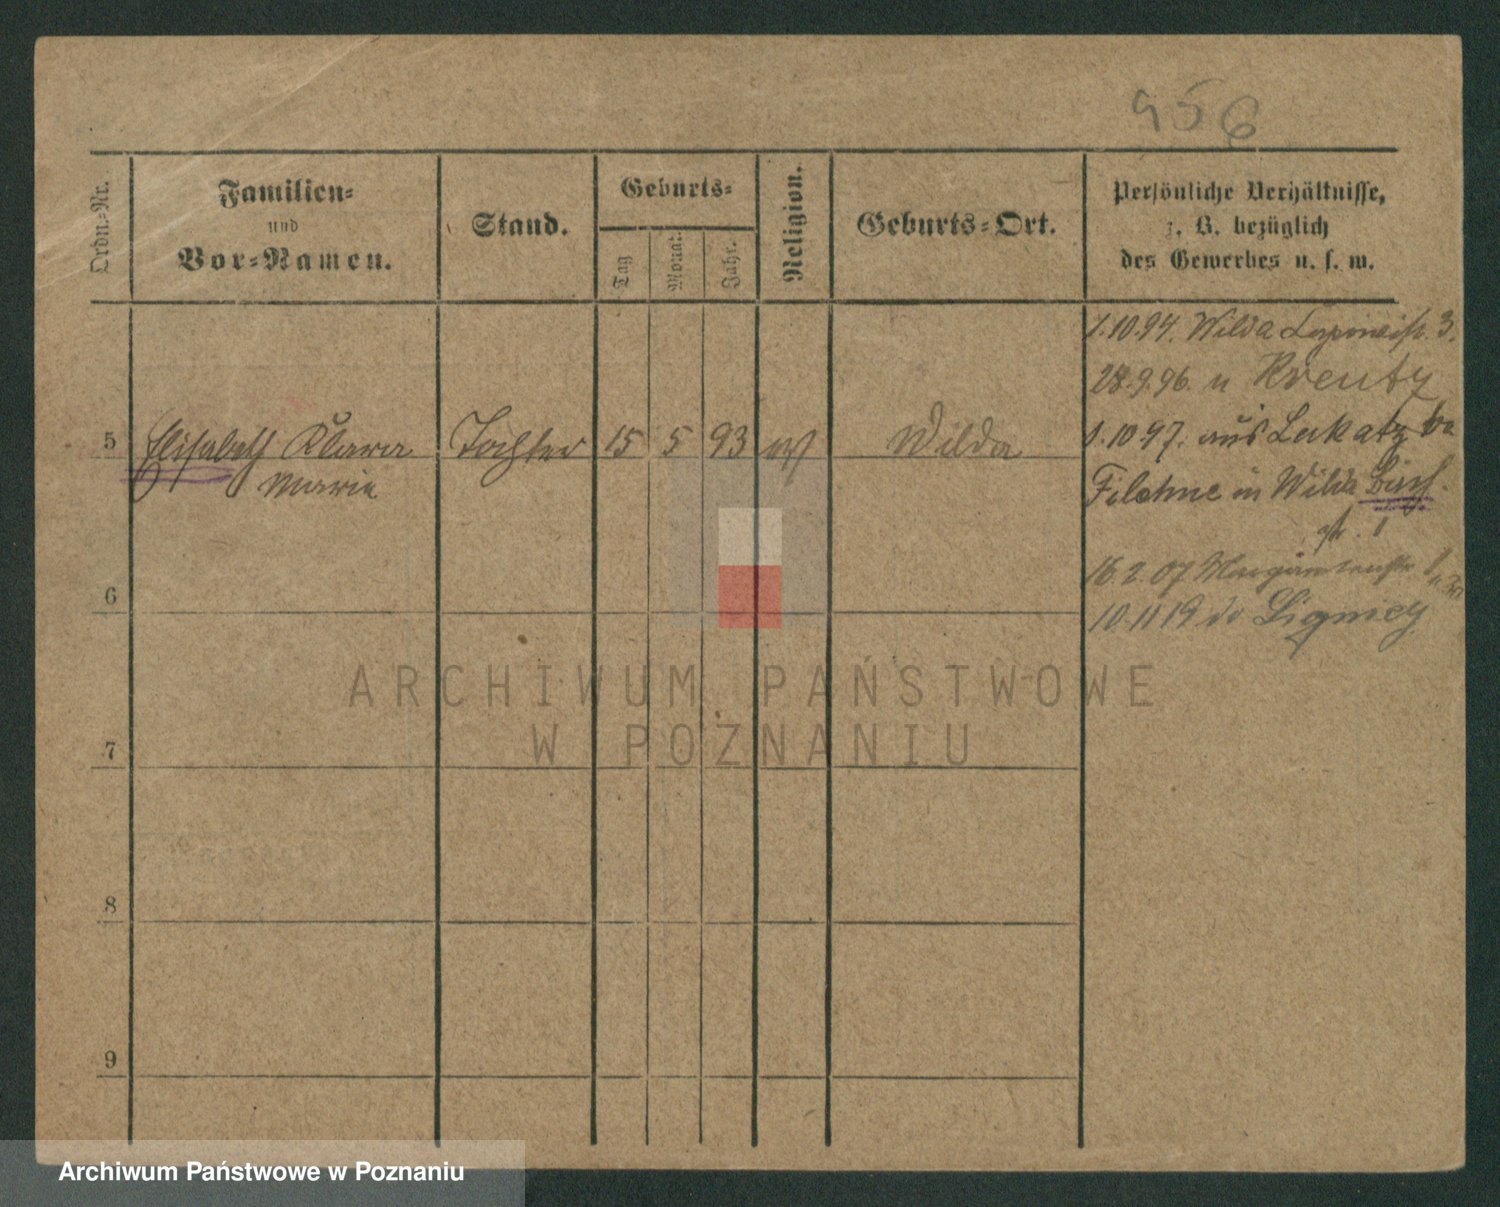 956
Ordn.-Nr.
Familien-
und
Vor-Namen.
Stand.
Geburts-
Tag
Monat.
Jahr.
Religion.
Geburts-Ort.
Persönliche Verhältnisse,
z. B. bezüglich
des Gewerbes u. s. w.
1.10.94. Wilda 3.
28.9.96. n Kreutz
5 Elisabeth Klara Tochter 15 5 93 Wilda
Marie
1.10.97. aus Lukatz
Filehne in Wilda
str. 1
6
16.2.07
10.11 19
7
8
9
ARCHIWUM PAŃSTWOWE
W POZNANIU
Archiwum Państwowe w Poznaniu